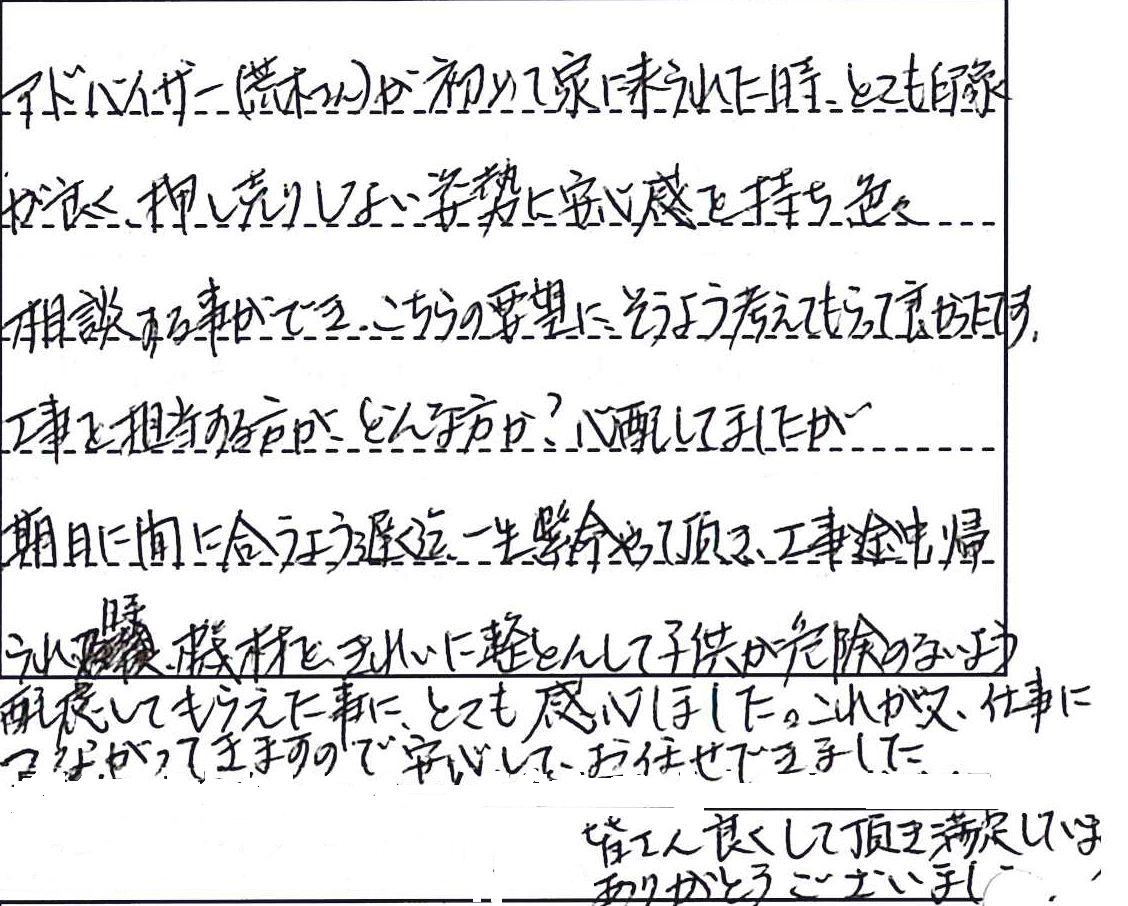 アドバイザー(荒木さん)が初めて家に来られた時、とても印象
が良く、押し売りしない姿勢に安心感を持ち色々
相談する事ができ、こちらの要望に、そうよう考えてもらって良かったです。
工事を担当する方が、どんな方か？心配してましたが
期日に間に合うよう遅く迄、一生懸命やって頂き、工事途中、帰
られる時、機材を、きれいに整とんして子供が危険のないよう
配慮してもらえた事に、とても感心しました。これが又、仕事に
つながってきますので安心して、お任せできました
皆さん良くして頂き満足していま
ありがとうございまし